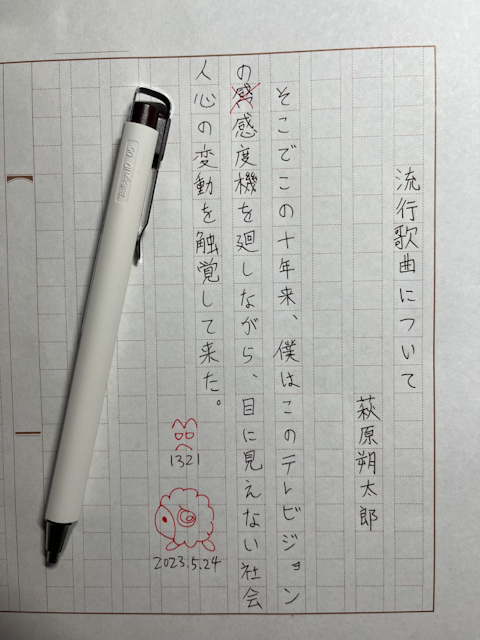 流行歌曲について
萩原朔太郎
そこでこの十年来、僕はこのテレビジョン
の感度機を廻しながら、目に見えない社会
人心の変動を触覚して来た。
1321
2023.5.24